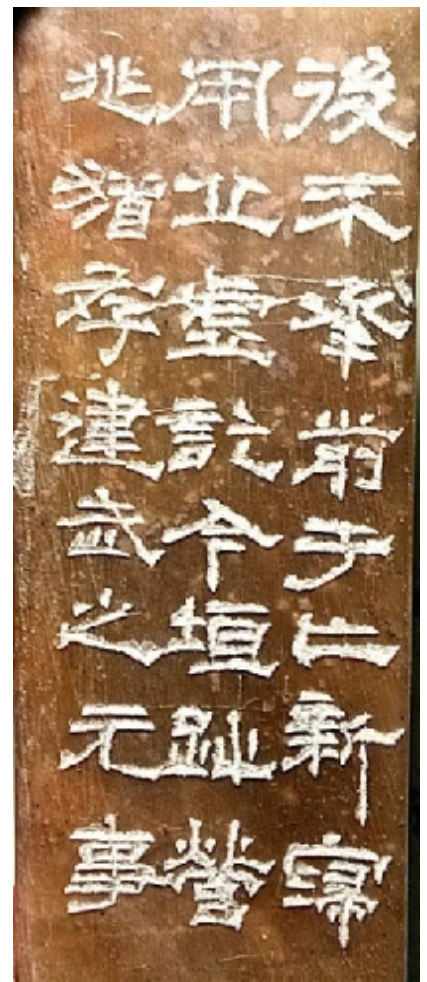 後不承前于亡新寖
用丘虛訖今垣趾營
兆猶存建武之元事